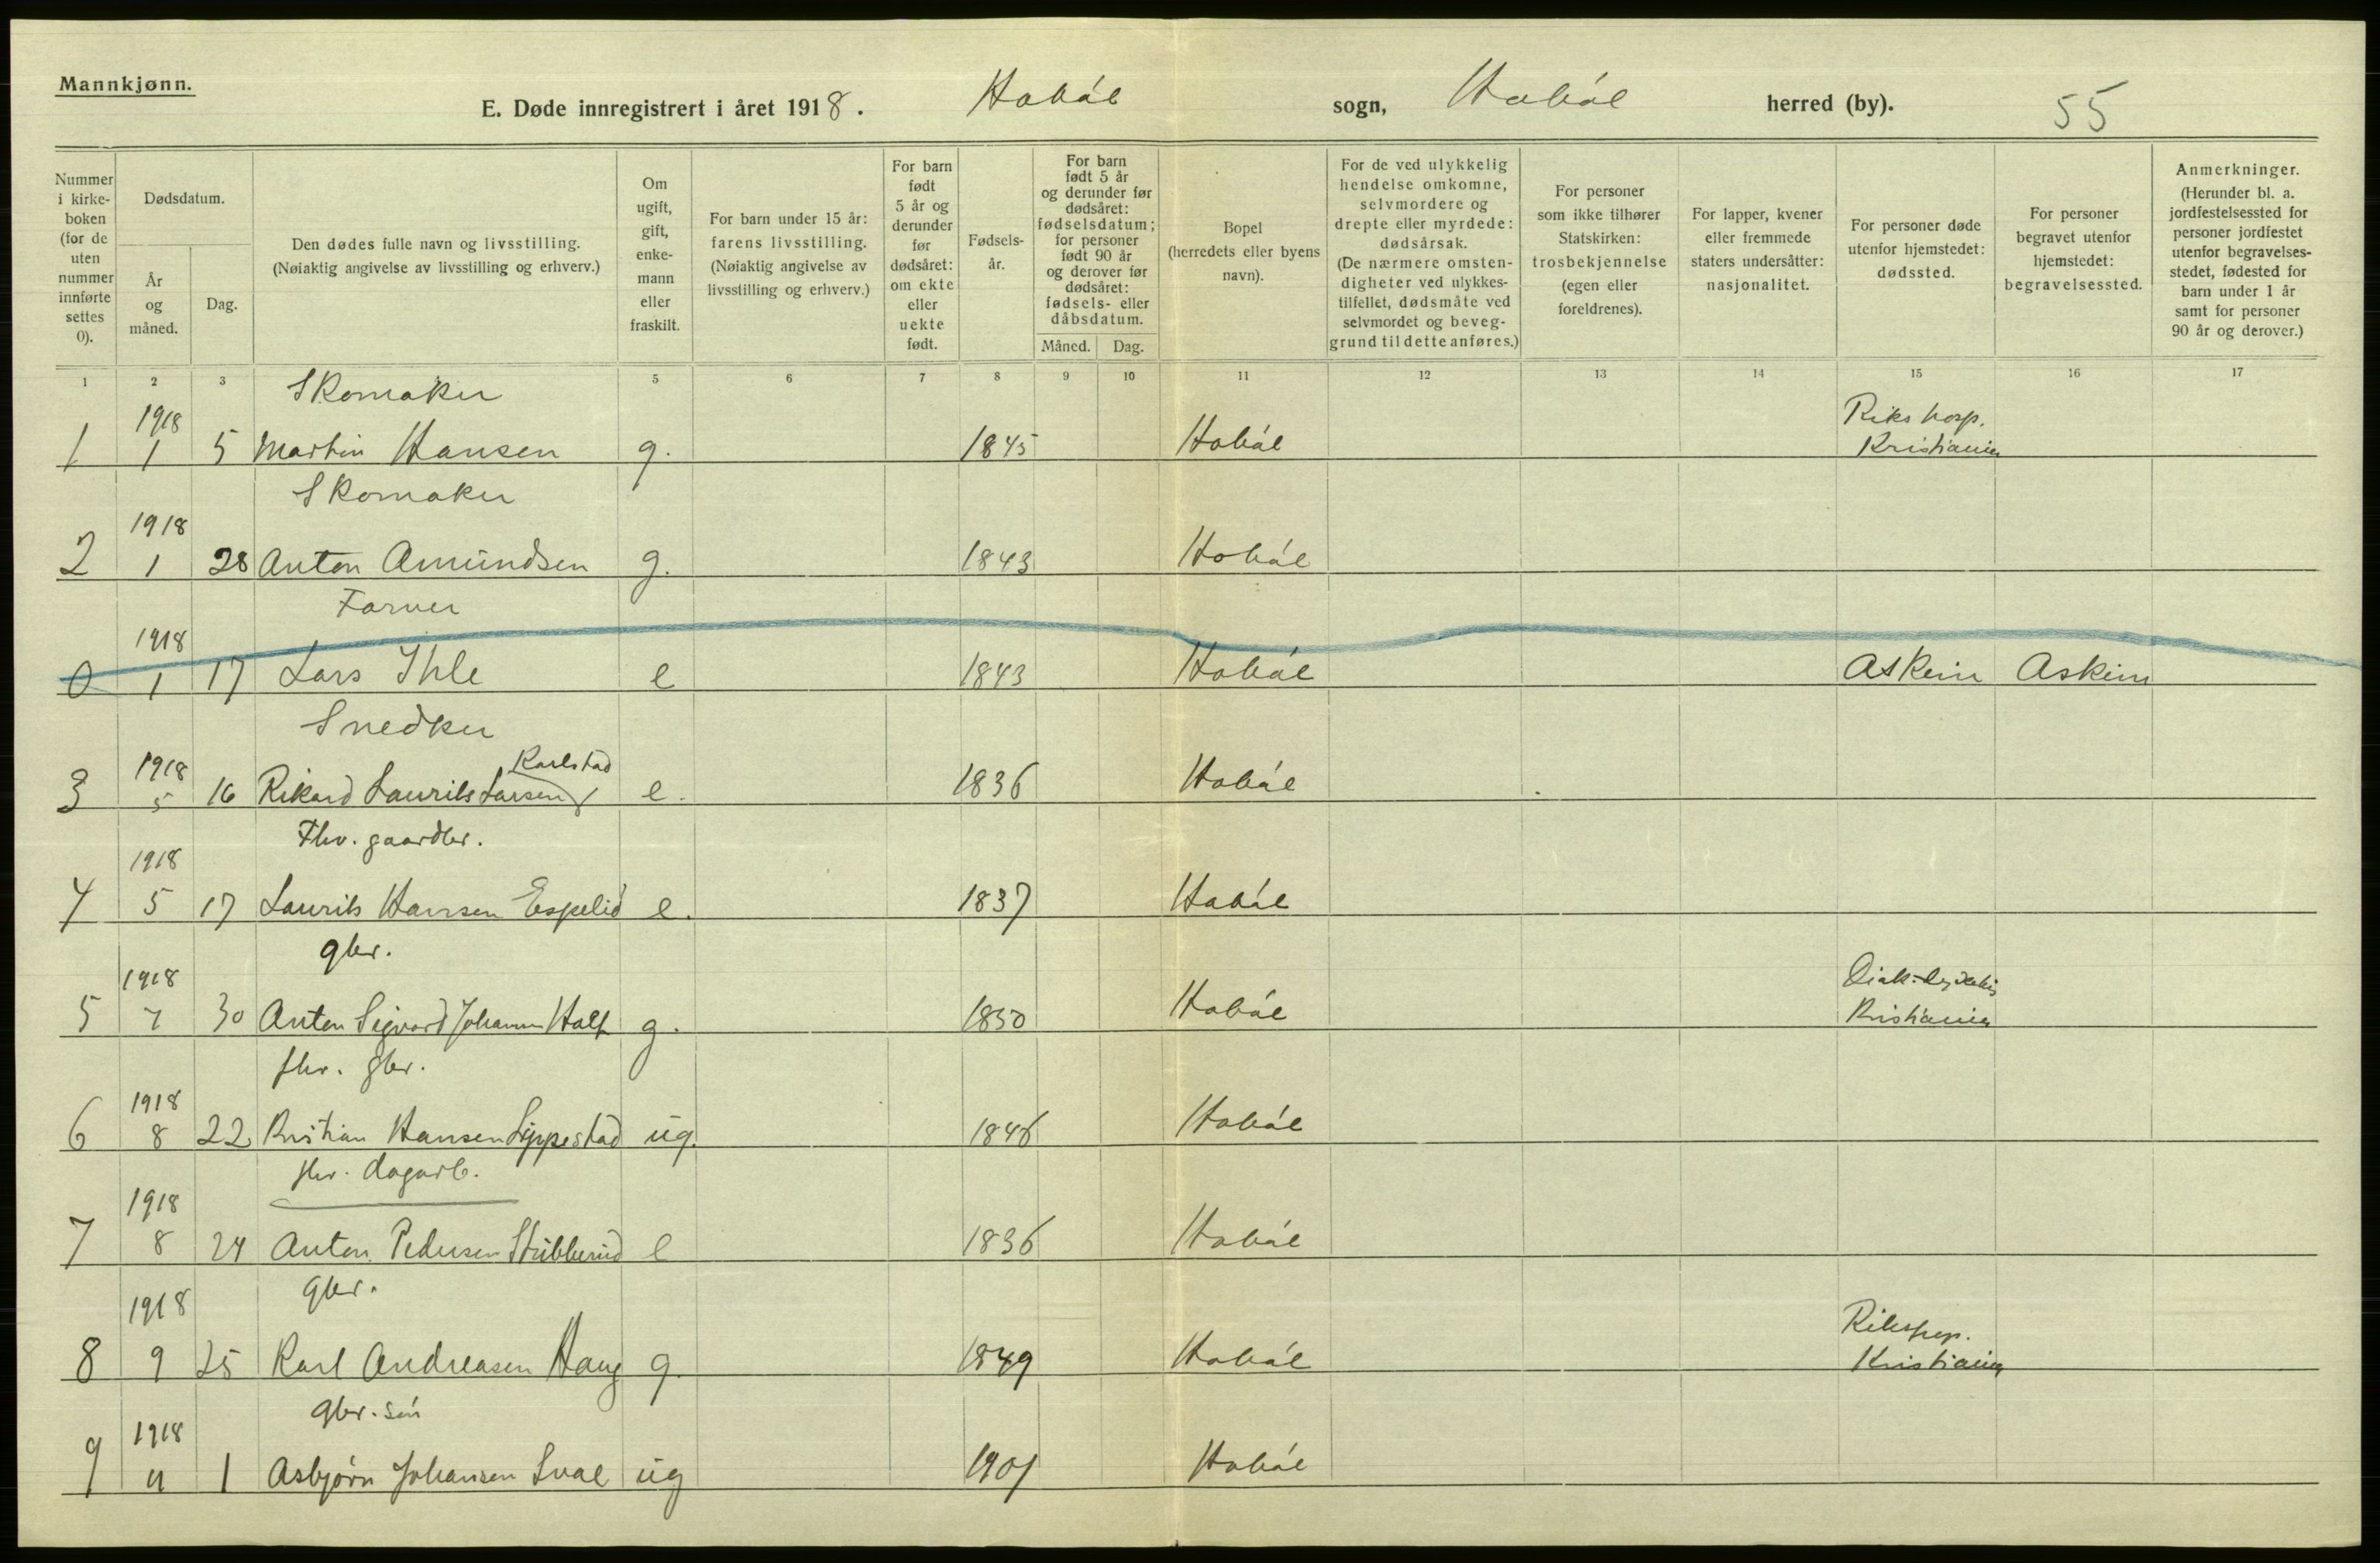 Mannkjønn.
E. Døde innregistrert i året 1918. Hobøl sogn, Hobøl herred (by). 55
Nummer i kirke- boken (for de uten nummer innførte settes 0).
Dødsdatum.
År og måned.
Dag.
Den dødes fulle navn og livsstilling. (Nøiaktig angivelse av livsstilling og erhverv.)
Om ugift, gift, enke- mann eller fraskilt.
For barn under 15 år: farens livsstilling. (Nøiaktig angivelse av livsstilling og erhverv.)
For barn født 5 år og derunder før dødsåret: om ekte eller uekte født.
Fødsels- år.
For barn født 5 år og derunder før dødsåret: fødselsdatum; for personer født 90 år og derover før dødsåret: fødsels- eller dåbsdatum.
Måned. Dag.
Bopel (herredets eller byens navn).
For de ved ulykkelig hendelse omkomne, selvmordere og drepte eller myrdede: dødsårsak. (De nærmere omsten- digheter ved ulykkes- tilfellet, dødsmåte ved selvmordet og beveg- grund til dette anføres.)
For personer som ikke tilhører Statskirken: trosbekjennelse (egen eller foreldrenes).
For lapper, kvener eller fremmede staters undersåtter: nasjonalitet.
For personer døde utenfor hjemstedet: dødssted.
For personer begravet utenfor hjemstedet: begravelsessted.
Anmerkninger. (Herunder bl. a. jordfestelsessted for personer jordfestet utenfor begravelses- stedet, fødested for barn under 1 år samt for personer 90 år og derover.)
1 2 3 5 6 7 8 9 10 11 12 13 14 15 16 17
Skomaker
1918 Rikshosp.
1 1 5 Martin Hansen g. 1845 Hobøl Kristiania
Skomaker
1918
2 1 28 Anton Amundsen g. 1843 Hobøl
Farver
1918
0 1 17 Lars Ihle e 1843 Hobøl Askim Askim
Snedker
1918 Karlstad
3 5 16 Rikard Laurits Larsen e. 1836 Hobøl
Fhv. gaardbr.
1918
4 5 17 Laurits Hansen Espelid e. 1837 Hobøl
gbr.
1918
5 7 30 Anton Sigvard Johannes g. 1850 Hobøl Kristiania
fhv. gbr.
1918
6 8 22 Kristian Hansen Lippestad ug. 1846 Hobøl
fhv. dagarb.
1918
7 8 24 Anton Pedersen Stubberud e 1836 Hobøl
gbr.
1918 Rikshosp.
8 9 25 Karl Andreasen Haug g. 1849 Hobøl Kristiania
gbr. søn
1918
9 11 1 Asbjørn Johansen Sval ug 1901 Hobøl